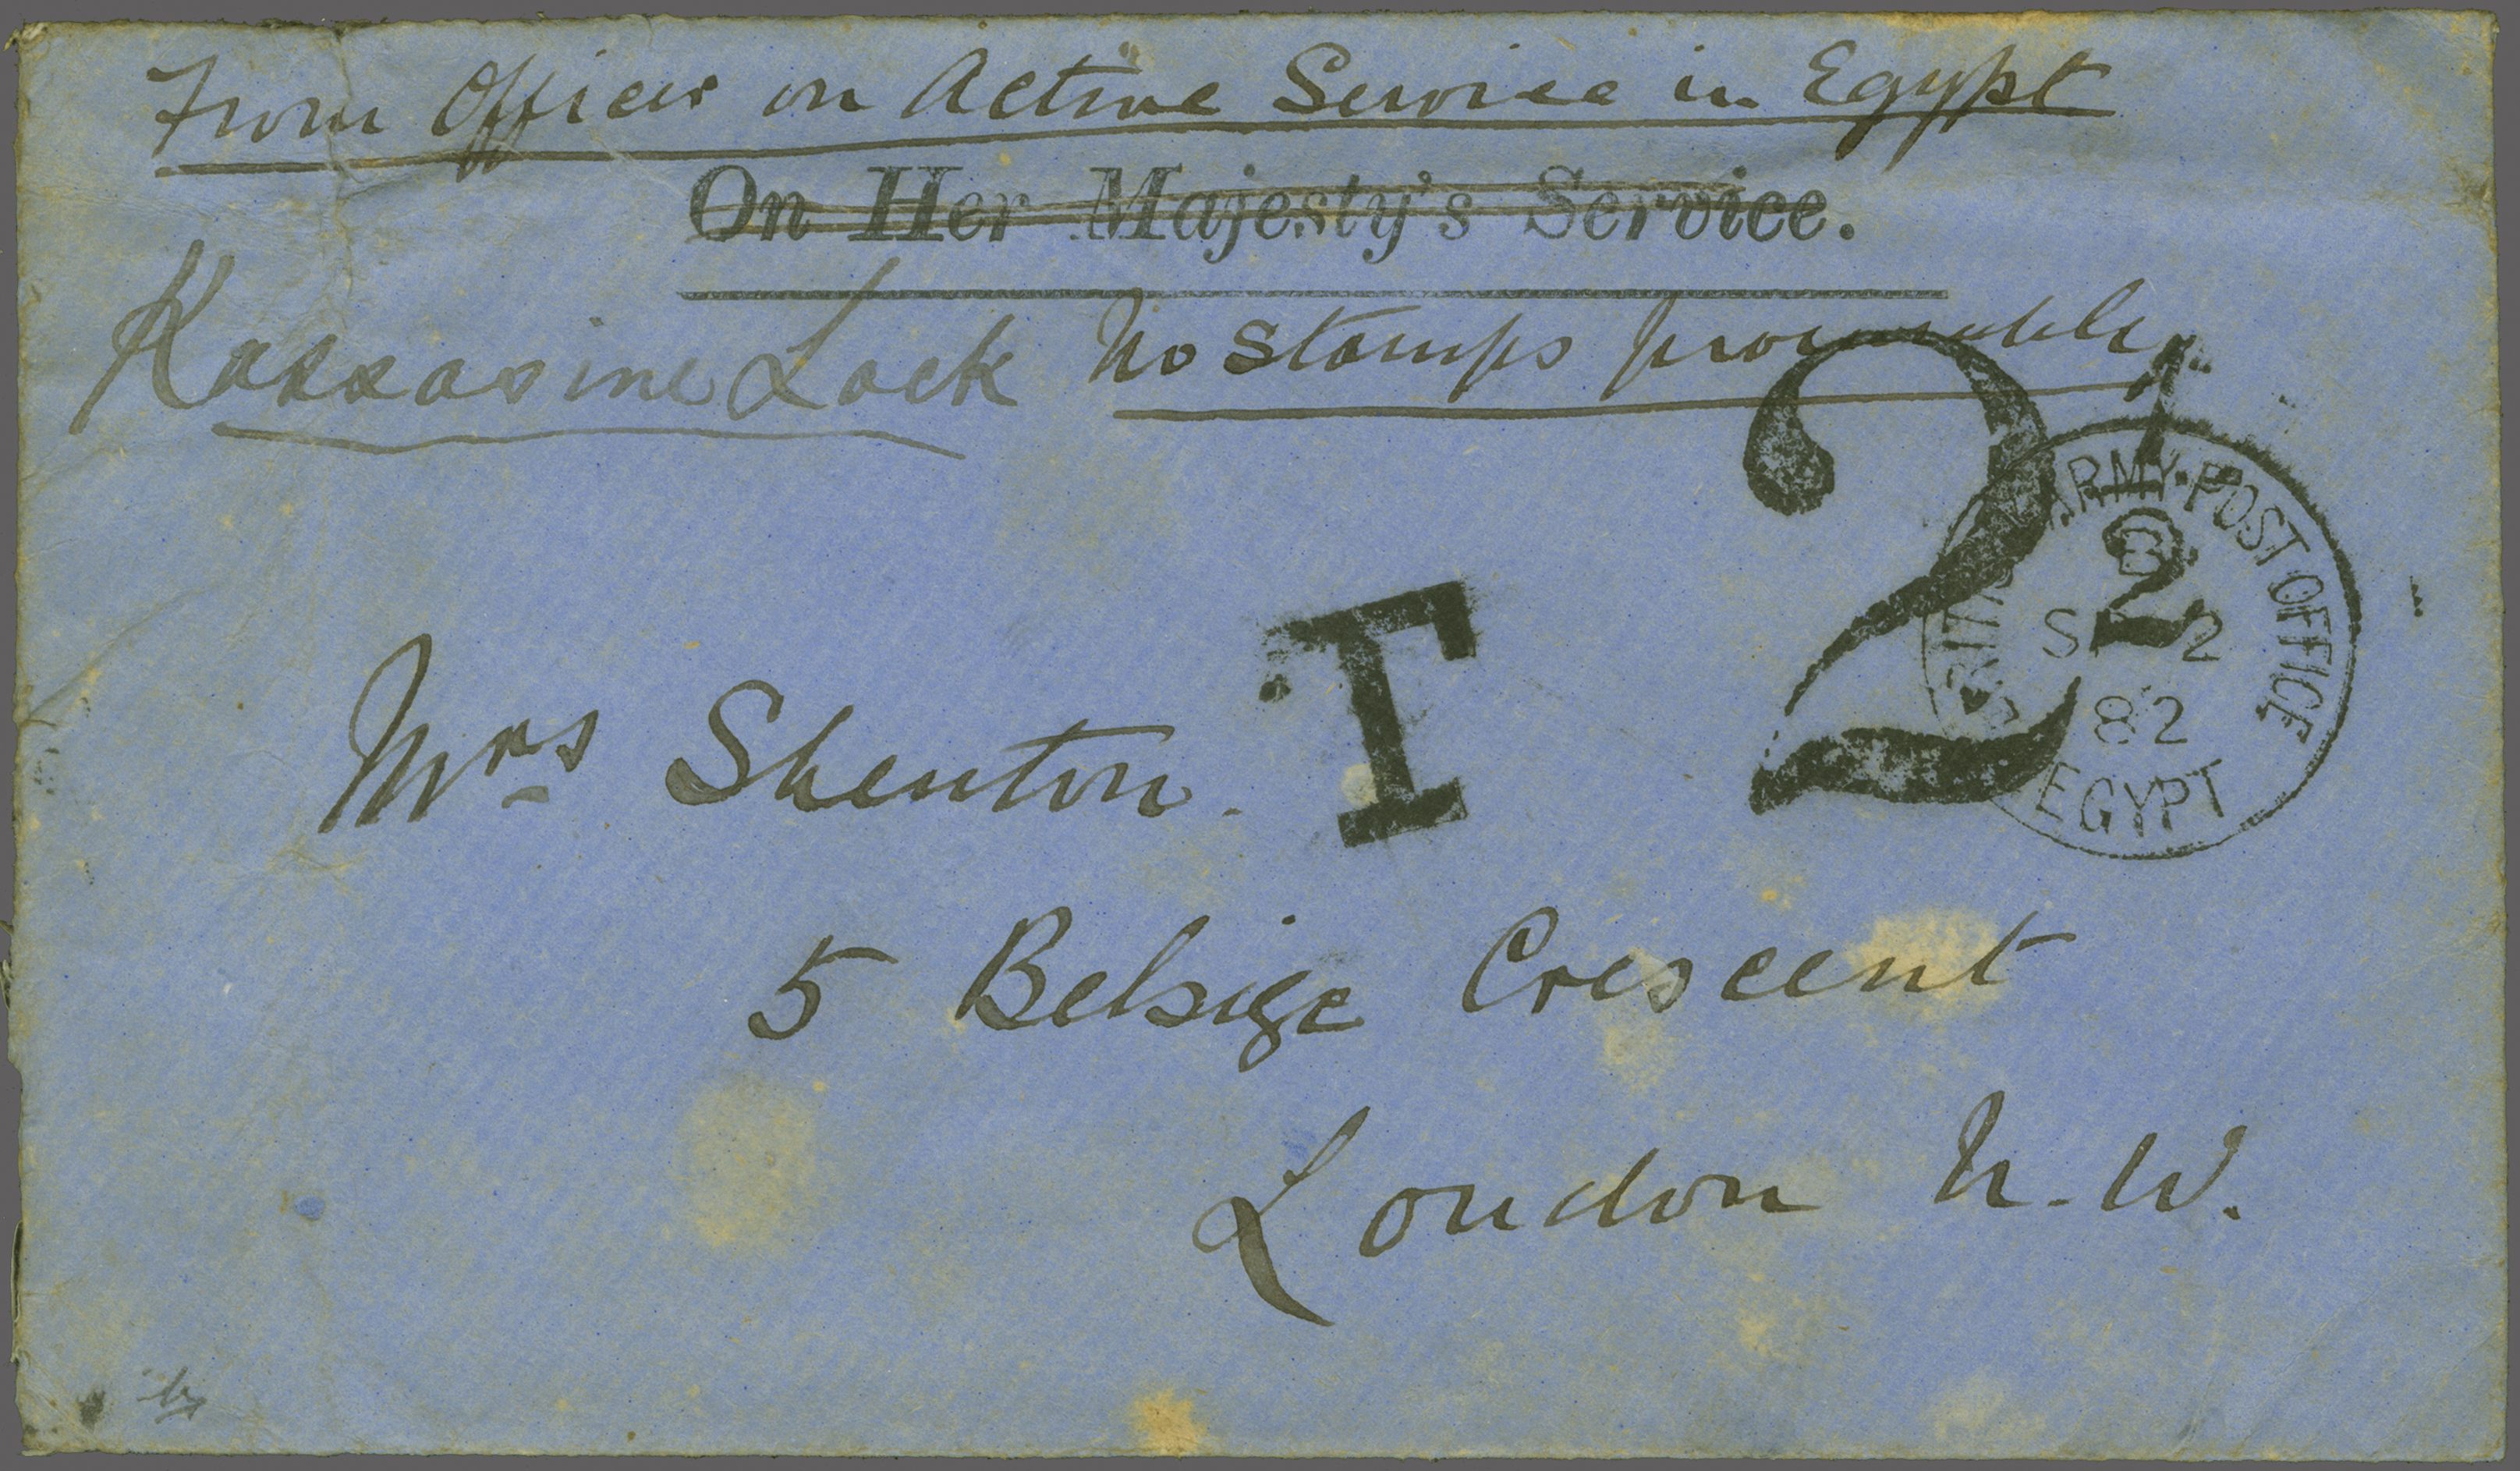 From Officer on Active Service in Egypt
On Her Majesty's Service.
Kassasine Lock No Stamps procurable
T
2½
BRITISH ARMY POST OFFICE
SP 2
82
EGYPT
Mrs Shenton.
5 Belsize Crescent
London N.W.